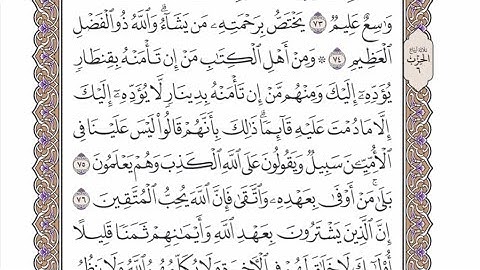 وَٰسِعٌ عَلِيمٌ ٧٣ يَخْتَصُّ بِرَحْمَتِهِۦ مَن يَشَآءُ ۗ وَٱللَّهُ ذُو ٱلْفَضْلِ
ٱلْعَظِيمِ ٧٤ ۞ وَمِنْ أَهْلِ ٱلْكِتَٰبِ مَنْ إِن تَأْمَنْهُ بِقِنطَارٍ
يُؤَدِّهِۦٓ إِلَيْكَ وَمِنْهُم مَّنْ إِن تَأْمَنْهُ بِدِينَارٍ لَّا يُؤَدِّهِۦٓ إِلَيْكَ
إِلَّا مَا دُمْتَ عَلَيْهِ قَآئِمًا ۗ ذَٰلِكَ بِأَنَّهُمْ قَالُوا۟ لَيْسَ عَلَيْنَا فِى
ٱلْأُمِّيِّـۧنَ سَبِيلٌ وَيَقُولُونَ عَلَى ٱللَّهِ ٱلْكَذِبَ وَهُمْ يَعْلَمُونَ ٧٥
بَلَىٰ مَنْ أَوْفَىٰ بِعَهْدِهِۦ وَٱتَّقَىٰ فَإِنَّ ٱللَّهَ يُحِبُّ ٱلْمُتَّقِينَ ٧٦
إِنَّ ٱلَّذِينَ يَشْتَرُونَ بِعَهْدِ ٱللَّهِ وَأَيْمَٰنِهِمْ ثَمَنًا قَلِيلًا
أُو۟لَٰٓئِكَ لَا خَلَٰقَ لَهُمْ فِى ٱلْءَاخِرَةِ وَلَا يُكَلِّمُهُمُ ٱللَّهُ وَلَا يَنظُرُ
الحزب
٦